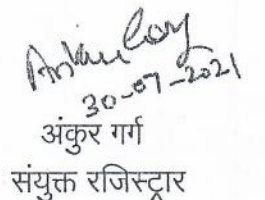 30-07-2021
अंकुर गर्ग
संयुक्त रजिस्ट्रार